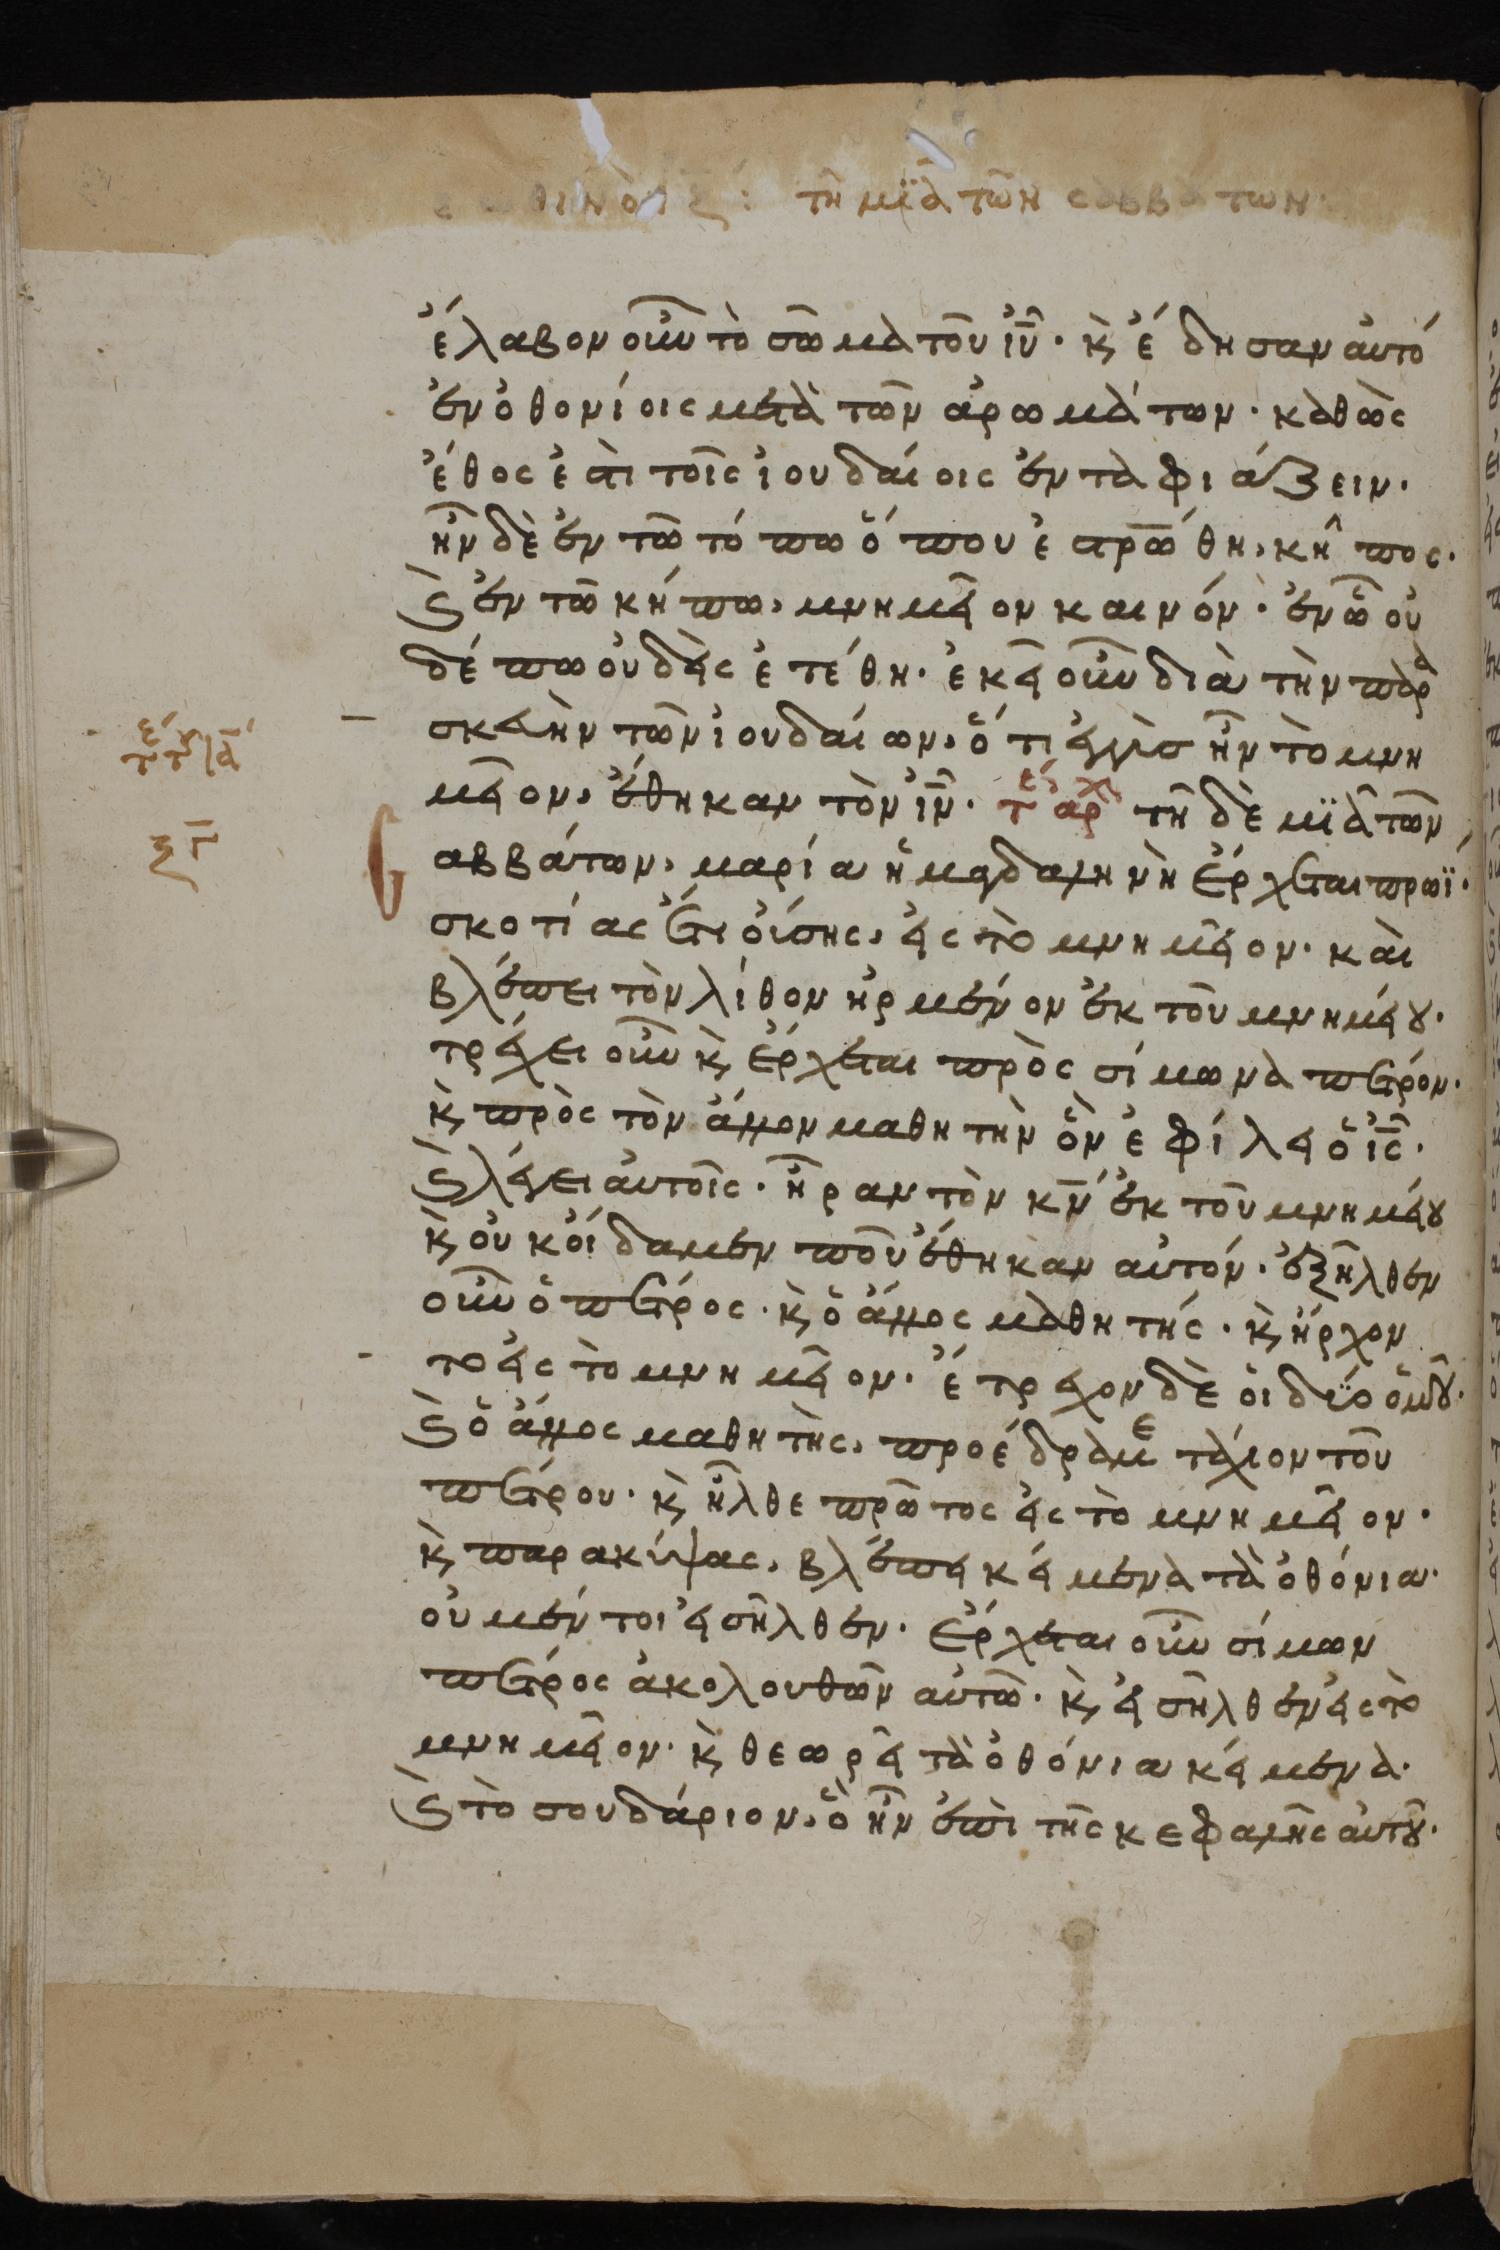 ἑωθινὸν ζ: τῆ μϊᾶ τῶν σαββάτων·
ἔλαβον οὖν τὸ σῶμα τοῦ ἰῦ· κ̀ ἔδησαν αὐτό
ἐν ὀθονίοις μετὰ τῶν ἀρωμάτων· καθὼς
ἔθος ἐστὶ τοῖς ἰουδαίοις ἐνταφιάζειν·
ἦν δὲ ἐν τῶ τόπω ὅπου ἐστρώθη, κῆπος·
κ̀ ἐν τῶ κήπω, μνημεῖον καινόν· ἐν ὧ οὐ
δέπω οὐδεὶς ἐτέθη· ἐκεῖ οὖν διὰ τὴν παρα
σκευὴν τῶν ἰουδαίων, ὅτι ἐγγὺς ἦν τὸ μνη
μεῖον, ἔθηκαν τὸν ἰν̄· τέ ἀρχ τῆ δὲ μϊᾶ τῶν
σαββάτων, μαρία ἡ μαγδαληνὴ ἔρχεται πρωῒ·
σκοτίας ἔτι οὔσης, εἰς τὸ μνημεῖον· καὶ
βλέπει τὸν λίθον ἠρμένον ἐκ τοῦ μνημείου·
τρέχει οὖν κ̀ ἔρχεται πρὸς σίμωνα πέτρον·
κ̀ πρὸς τὸν ἄλλον μαθητὴν ὃν ἐφίλει ὁ ἰς̄·
κ̀ λέγει αὐτοῖς· ἦραν τὸν κν̄ ἐκ τοῦ μνημείου
κ̀ οὐκ οἴδαμεν ποῦ ἔθηκαν αὐτόν· ἐξῆλθεν
οὖν ὁ πέτρος· κ̀ ὁ ἄλλος μαθητής· κ̀ ἤρχον
το εἰς τὸ μνημεῖον· ἔτρεχον δὲ οἱ δύο ὁμοῦ·
κ̀ ὁ ἄλλος μαθητὴς, προέδραμε τάχιον τοῦ
πέτρου· κ̀ ἦλθε πρῶτος εἰς τὸ μνημεῖον·
κ̀ παρακύψας, βλέπει κείμενα τὰ ὀθόνια·
οὐ μέντοι εἰσῆλθεν· ἔρχεται οὖν σίμων
πέτρος ἀκολουθῶν αὐτῶ· κ̀ εἰσῆλθεν εἰς τὸ
μνημεῖον· κ̀ θεωρεῖ τὰ ὀθόνια κείμενα·
κ̀ τὸ σουδάριον, ὃ ἦν ἐπὶ τῆς κεφαλῆς αὐτοῦ·